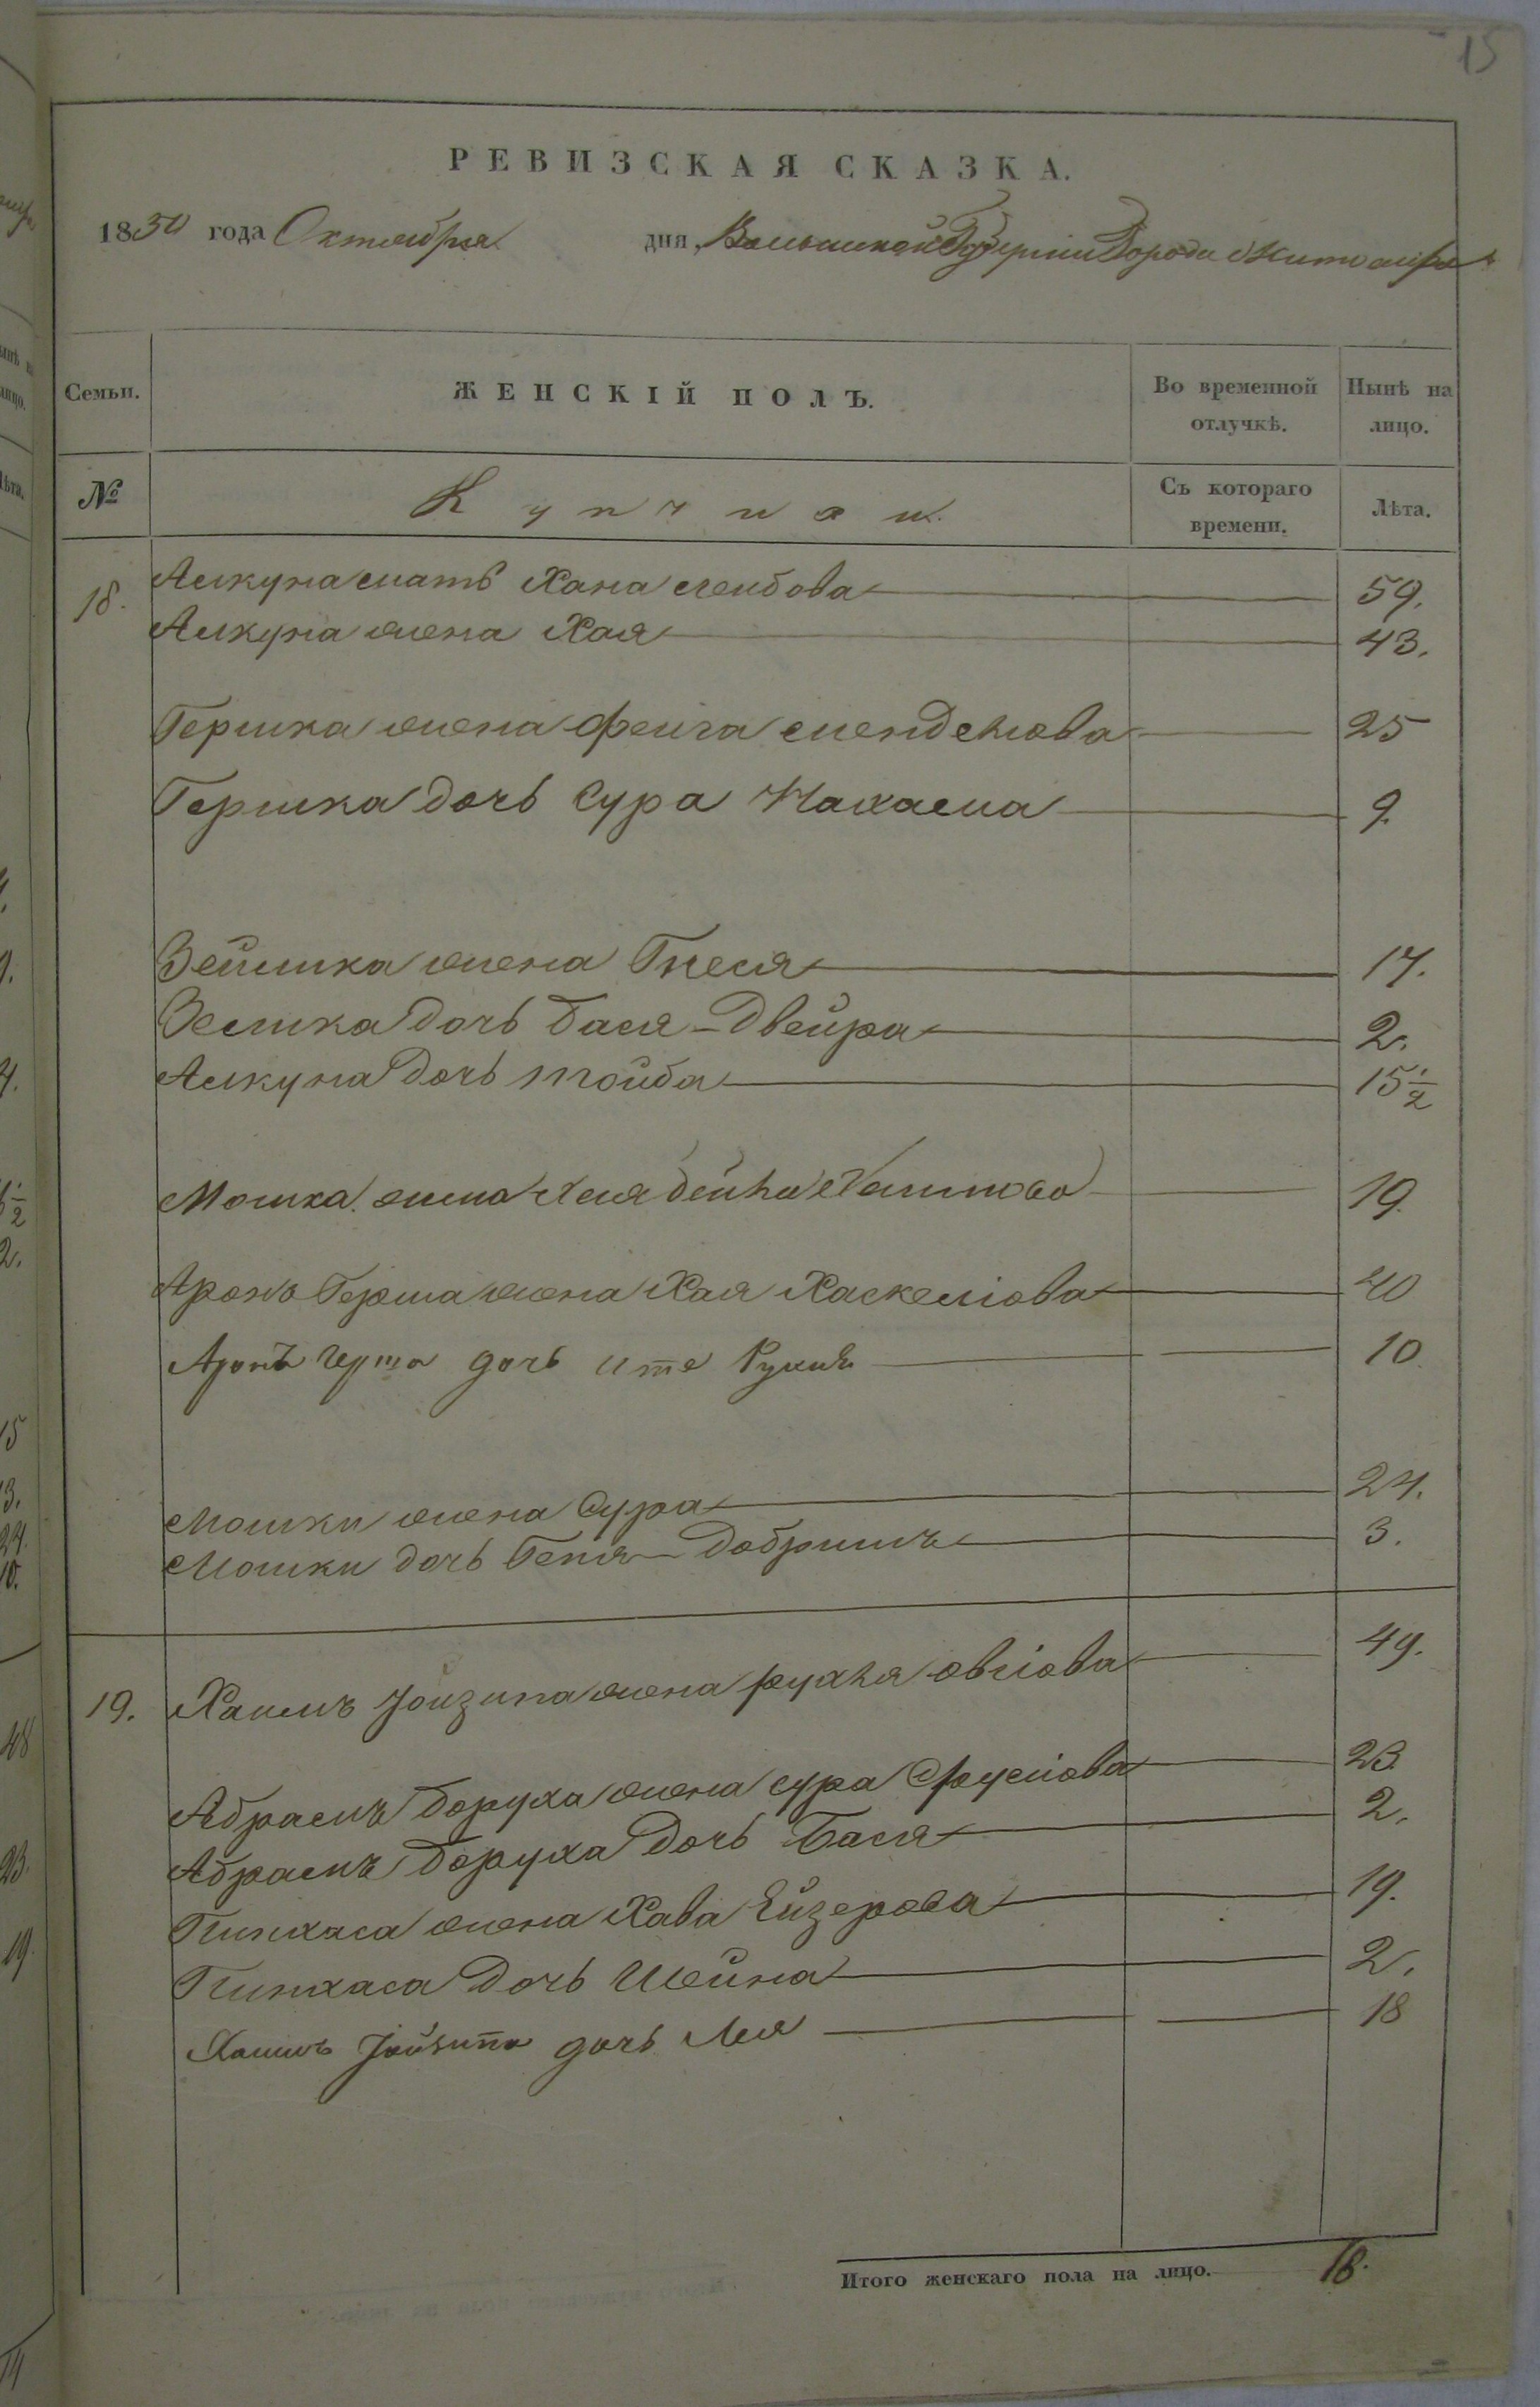 15
РЕВИЗСКАЯ СКАЗКА.
1850 года Октября дня, Волынской Губернии Города Житомира
Семьи. ЖЕНСКІЙ ПОЛЪ. Во временной отлучкѣ. Нынѣ на лицо.
№ Съ котораго времени. Лѣта.
18. Анкуна мать Хана Лейбова 59.
Анкуна жена Хая 43.
Гершка жена Фейга Менделіова 25
Гершка дочь Сура Нахама 9.
Зейлика жена Гнеся 17.
Зелика дочь Бася-Двейра 2.
Анкуна дочь Тойба 15 1/2
Мошка жена Хая Бейла 19
Аронъ Герша жена Хая Хаскеліова 40
Аронъ Герша дочь Ите Рухля 10
Мошки жена Сура 24.
Мошки дочь Геня-Добришъ 3.
19. Хаимъ Іойзипа жена Рухля 49.
Абрамъ Боруха жена Сура Сруліова 23
Абрамъ Боруха дочь Бася 2.
Пинхаса жена Хава Ейзерова 19.
Пинхаса дочь Шейна 2.
Хаимъ Іойзипа дочь Лея 18
Итого женскаго пола на лицо. 18.